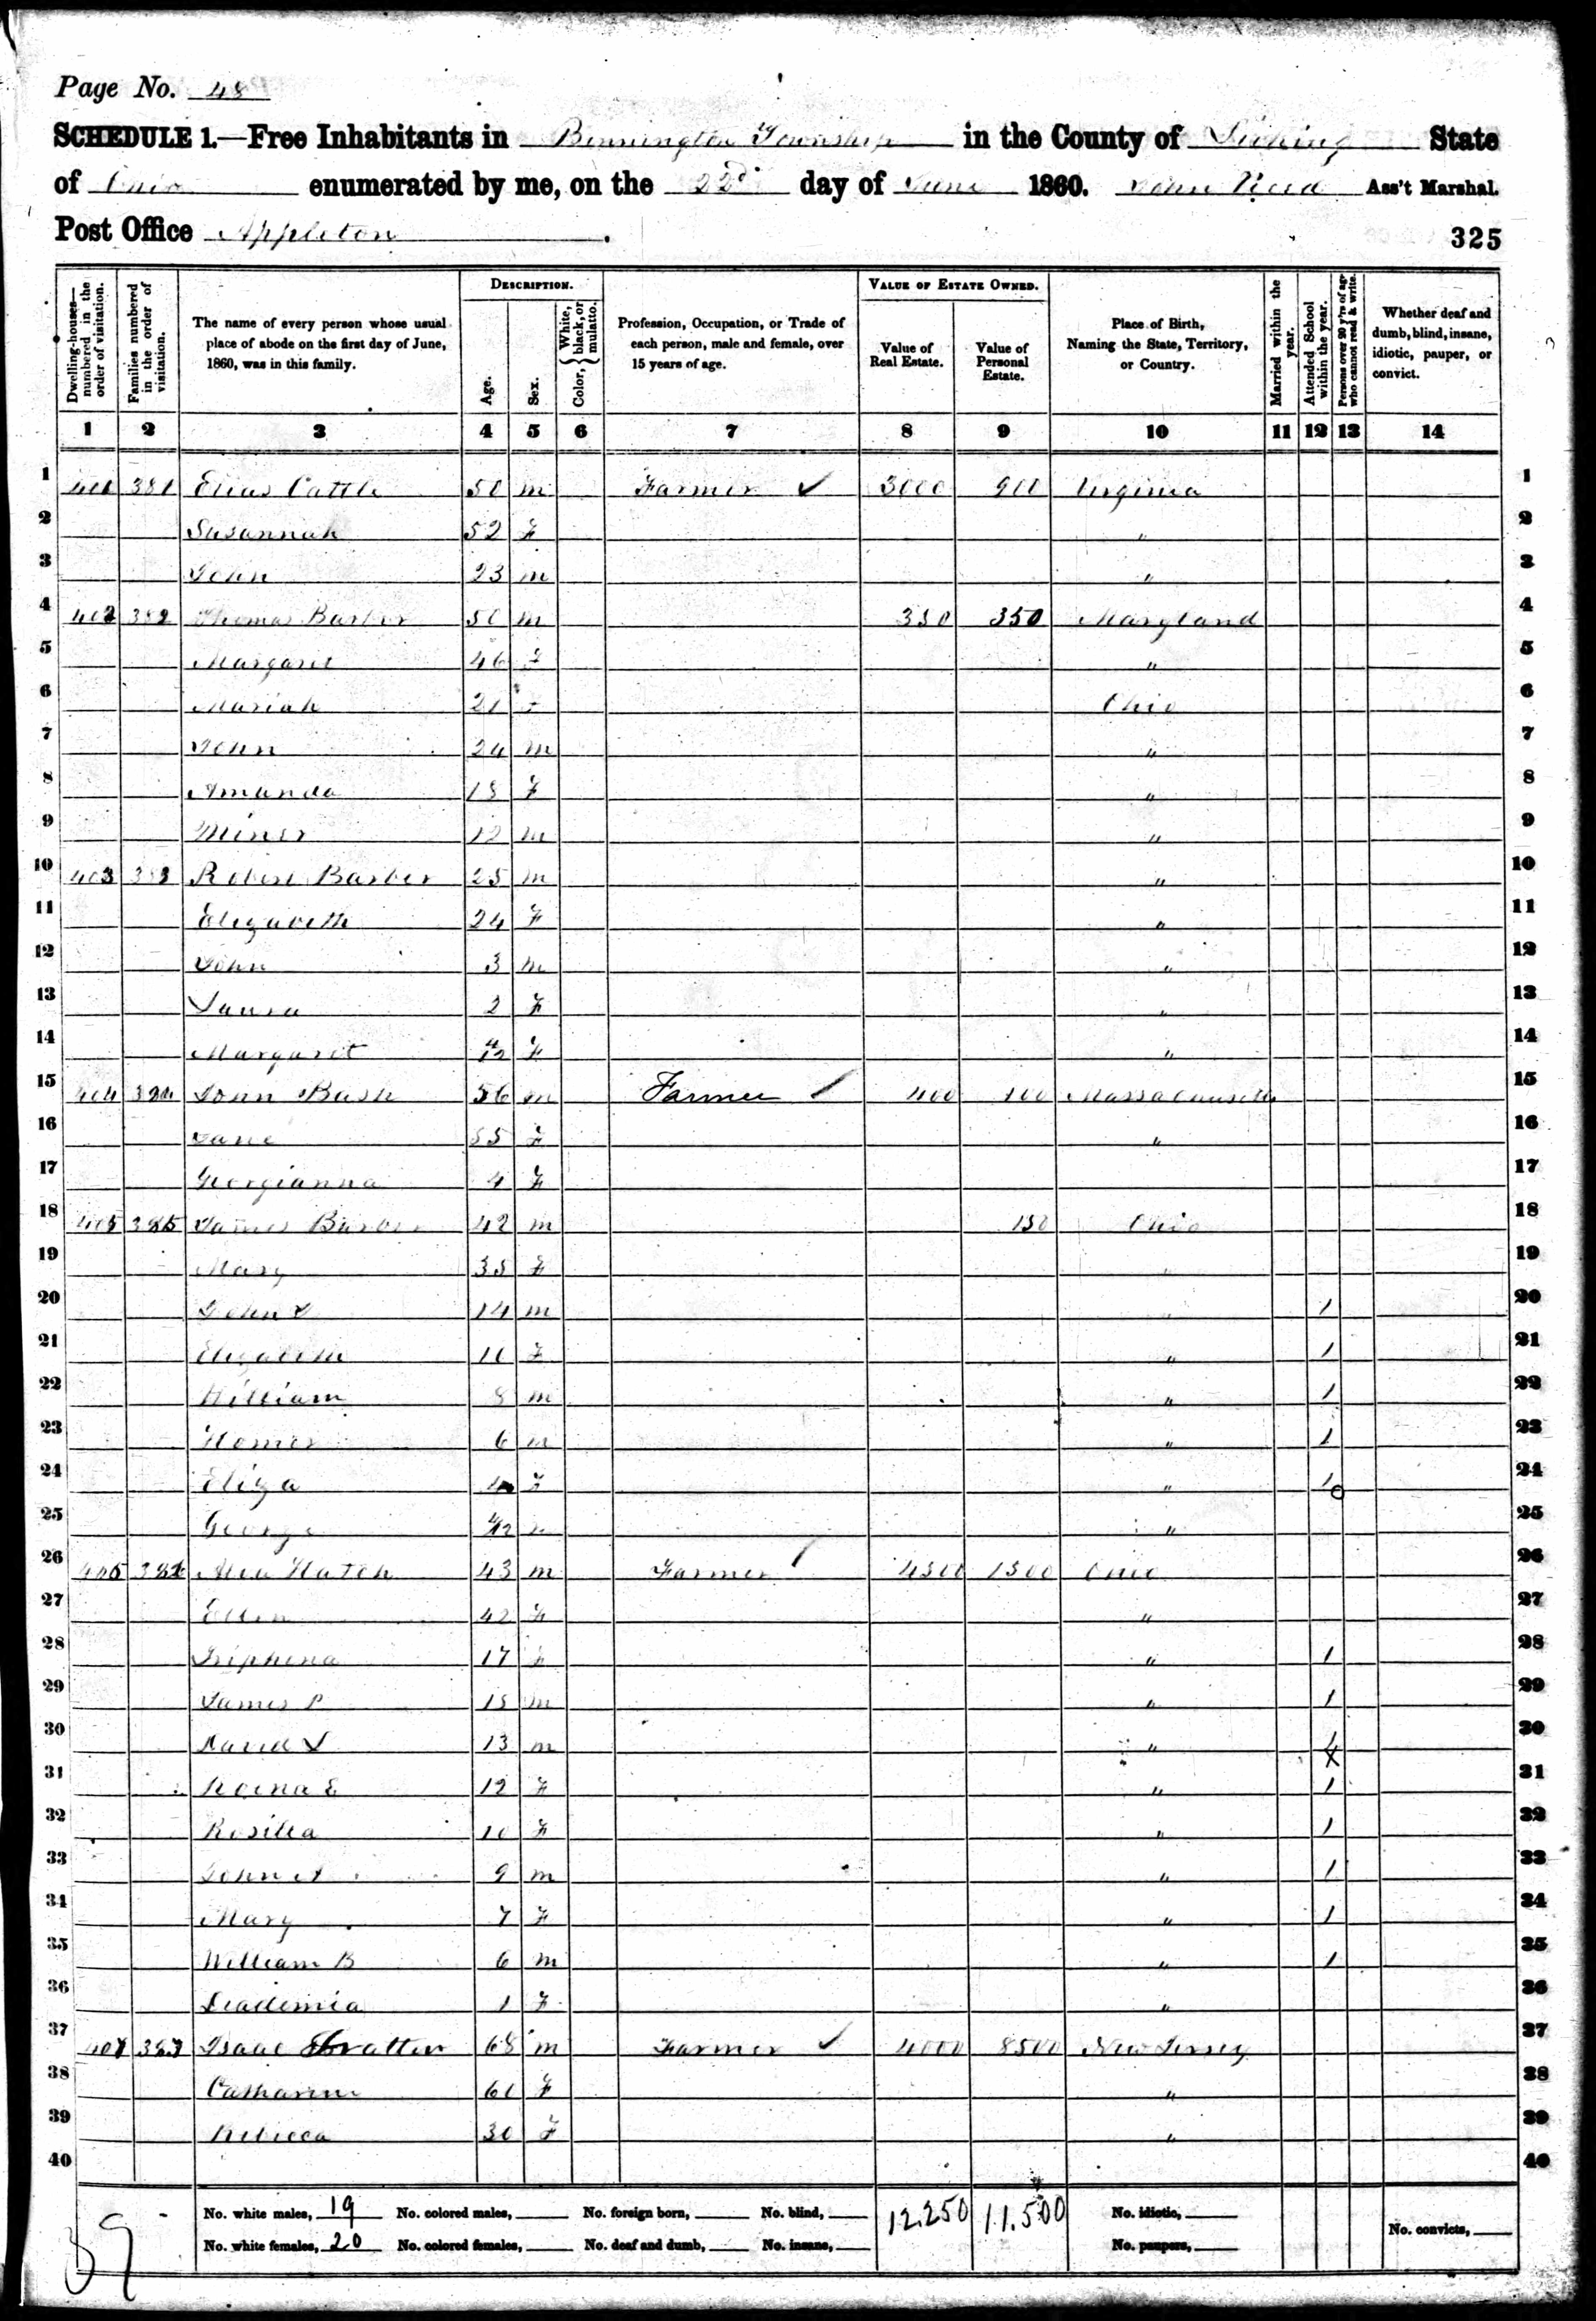 Page No. 48
SCHEDULE 1.—Free Inhabitants in Bennington Township in the County of Licking State
of Ohio enumerated by me, on the 22d day of June 1860. John Reed Ass't Marshal.
Post Office Appleton.
325
Dwelling-houses—numbered in the order of visitation.
Families numbered in the order of visitation.
The name of every person whose usual place of abode on the first day of June, 1860, was in this family.
DESCRIPTION.
Age.
Sex.
Color, { White, black, or mulatto. }
Profession, Occupation, or Trade of each person, male and female, over 15 years of age.
VALUE OF ESTATE OWNED.
Value of Real Estate.
Value of Personal Estate.
Place of Birth, Naming the State, Territory, or Country.
Married within the year.
Attended School within the year.
Persons over 20 y'rs of age who cannot read & write.
Whether deaf and dumb, blind, insane, idiotic, pauper, or convict.
1 2 3 4 5 6 7 8 9 10 11 12 13 14
1 401 381 Elias Cattle 50 m Farmer ✓ 3000 900 Virginia 1
2 Susannah 52 F " 2
3 John 23 m " 3
4 402 382 Thomas Barber 50 m 350 Maryland 4
5 Margaret 46 F " 5
6 Mariah 21 F Ohio 6
7 John 24 m " 7
8 Amanda F " 8
9 Miner 12 m " 9
10 403 383 Robert Barber 25 m " 10
11 Elizabeth 24 F " 11
12 John 3 m " 12
13 Laura 2 F " 13
14 Margaret 4/12 F " 14
15 404 384 John Bash 56 m Farmer ✓ 400 100 Massachusetts 15
16 Jane 55 F " 16
17 Georgianna 4 F 17
18 405 385 James Barber 42 m 150 Ohio 18
19 Mary 35 F " 19
20 John 14 m " 1 20
21 Elizabeth F " 1 21
22 William 8 m " 1 22
23 Homer 6 m " 1 23
24 Eliza 4 F " 1 24
25 George 4/12 m " 25
26 406 Hatch 43 m Farmer ✓ 4500 1500 Ohio 26
27 Ellen 42 F " 27
28 Triphena 17 F " 1 28
29 James P 15 m " 1 29
30 David L 13 m " 30
31 Roena E 12 F " 1 31
32 Rosilla 10 F " 1 32
33 John A 9 m " 1 33
34 Mary 7 F " 1 34
35 William B 6 m " 1 35
36 Diademia 1 F " 36
37 407 387 Isaac Stratten 68 m Farmer ✓ 4000 8500 New Jersey 37
38 Catharine F " 38
39 Rebecca 30 F " 39
40 40
No. white males, 19 No. colored males, No. foreign born, No. blind, 12.250 11.500 No. idiotic, No. convicts,
No. white females, 20 No. colored females, No. deaf and dumb, No. insane, No. paupers,
39